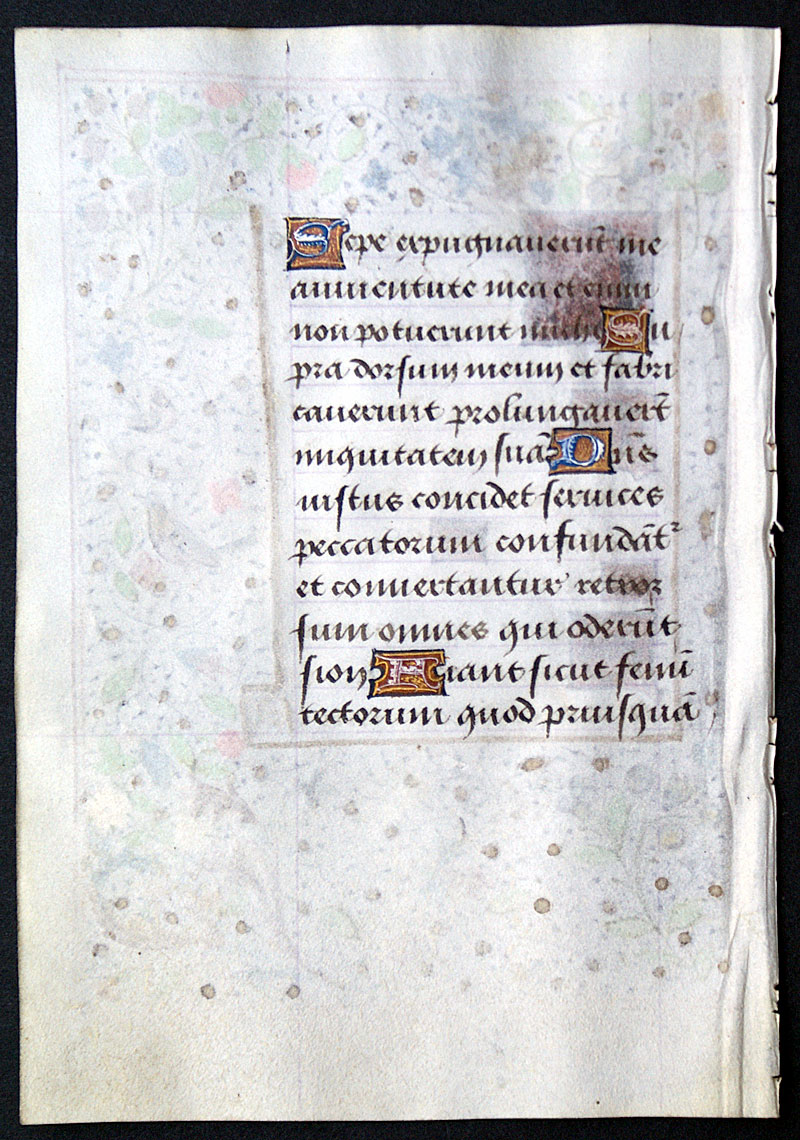 Sepe expugnauerūt me
a iuuentute mea et enim
non potuerunt michi Su
pra dorsum meum et fabri
cauerunt prolungauerūt
iniquitatem suā Dn̄s
iustus concidet seruices
peccatorum confundāt᷑
et conuertantur retror
sum omnes qui oderūt
sion Fiant sicut fenū
tectorum quod priusquā